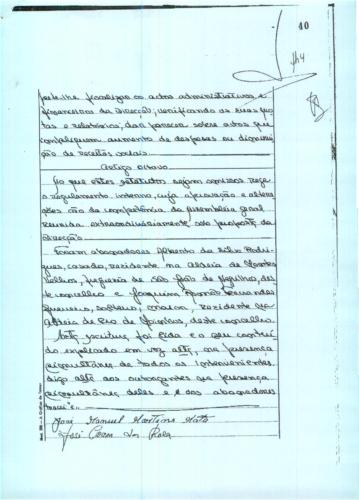 40
pete-lhe fiscalizar os actos administrativos e
financeiros da direcção, verificando as suas con
tas e relatórios, dar parecer sobre actos que
impliquem aumento de despesas ou diminui
ção de receitas sociais.
Artigo oitavo
No que estes estatutos sejam omissos rege
o regulamento interno, cuja aprovação e altera
ções são da competência da assembleia geral
reunida extraordinariamente sob proposta da
direcção.
Foram abonadores Alberto da Silva Rodri
gues, casado, residente na Aldeia de
freguesia de São João de des
te concelho e Joaquim
solteiro, maior, residente na
Aldeia de deste concelho.
Esta escritura foi lida e o seu conteú
do explicado em voz alta, na presença
simultânea de todos os intervenientes,
digo alta aos outorgantes na presença
simultânea deles e dos abonadores
José Manuel Martins
José